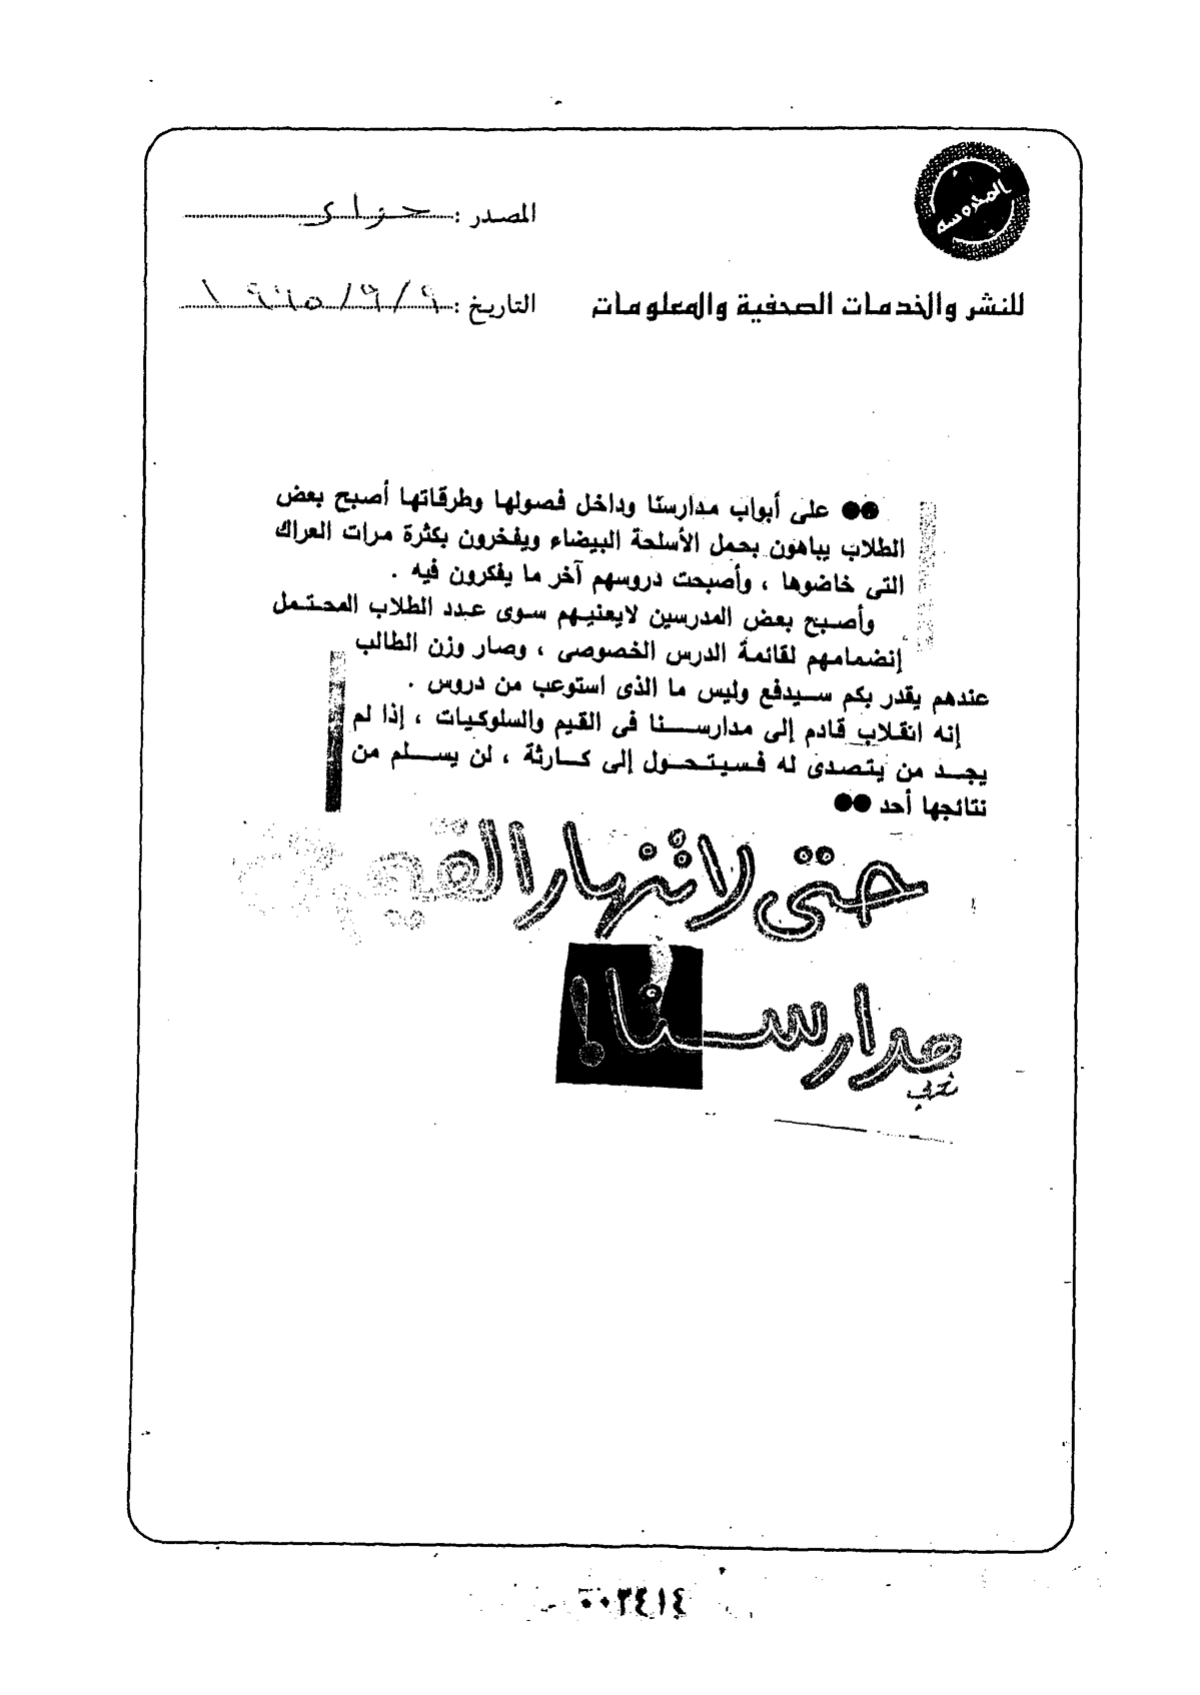 المحروسة
المصدر : حواء
للنشر والخدمات الصحفية والمعلومات
التاريخ : ٩/٩/١٩٩٥
●● على أبواب مدارسنا وداخل فصولها وطرقاتها أصبح بعض
الطلاب يباهون بحمل الأسلحة البيضاء ويفخرون بكثرة مرات العراك
التى خاضوها ، وأصبحت دروسهم آخر ما يفكرون فيه .
وأصبح بعض المدرسين لايعنيهم سوى عدد الطلاب المحتمل
إنضمامهم لقائمة الدرس الخصوصى ، وصار وزن الطالب
عندهم يقدر بكم سيدفع وليس ما الذى استوعب من دروس .
إنه انقلاب قادم إلى مدارسنا فى القيم والسلوكيات ، إذا لم
يجد من يتصدى له فسيتحول إلى كارثة ، لن يسلم من
نتائجها أحد ●●
حتى لا تنهار القيم فى
مدارسنا !
٠٠٣٤١٤